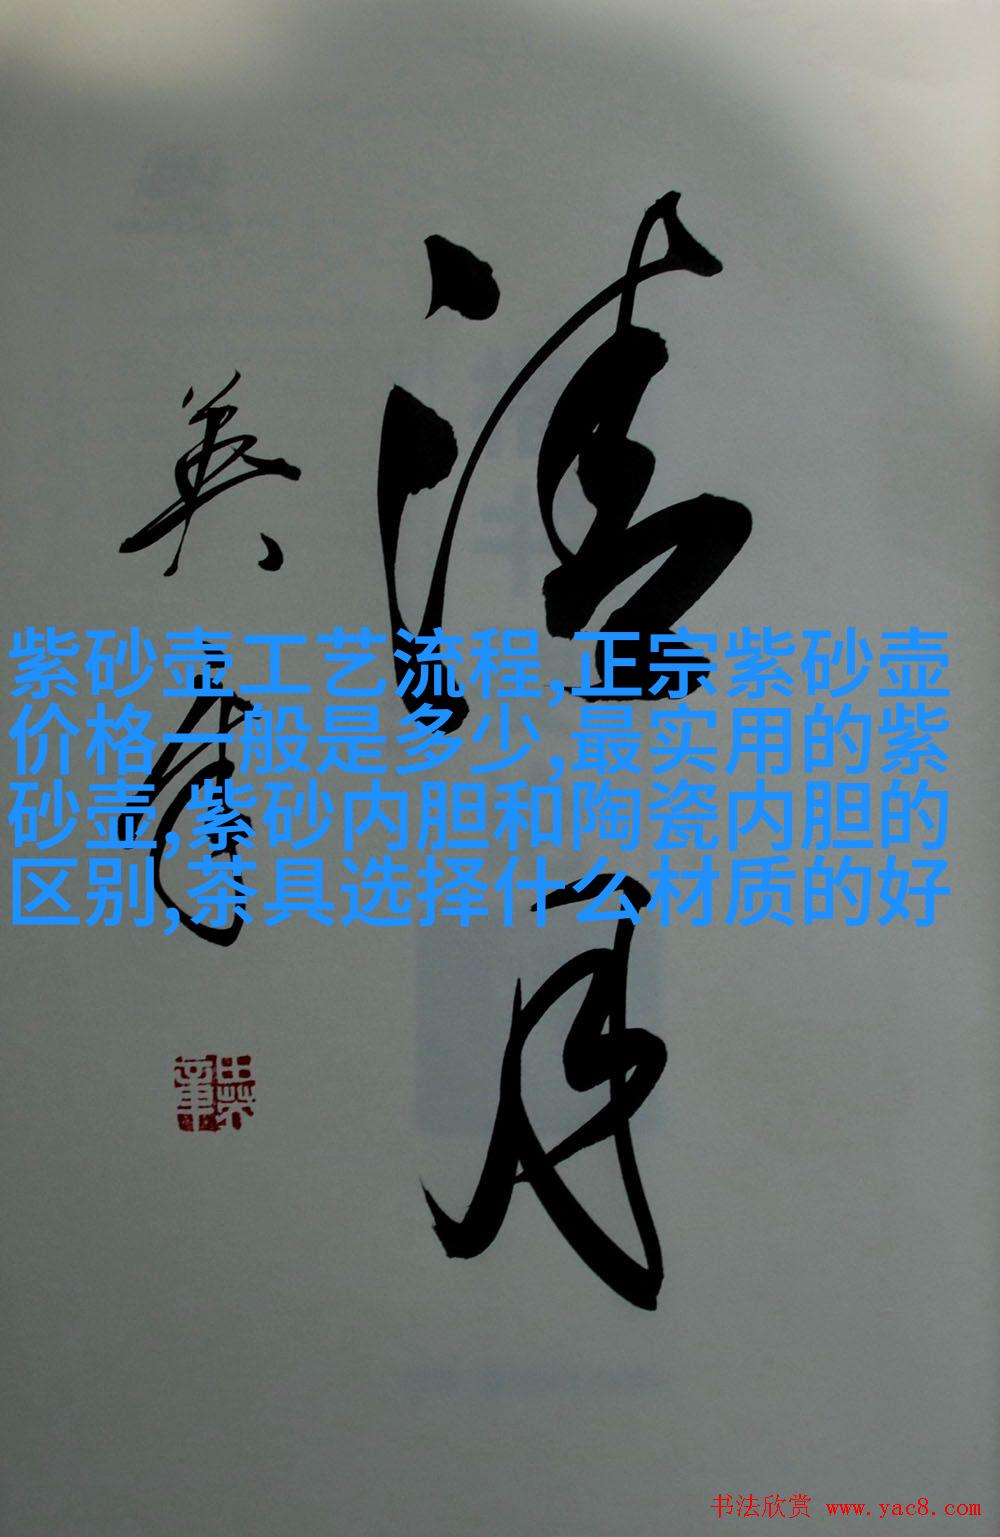 清月
英章
紫砂壶工艺流程,正宗紫砂壶
价格一般是多少,最实用的紫
砂壶,紫砂内胆和陶瓷内胆的
区别,茶具选择什么材质的好
书法欣赏 www.yac8.com